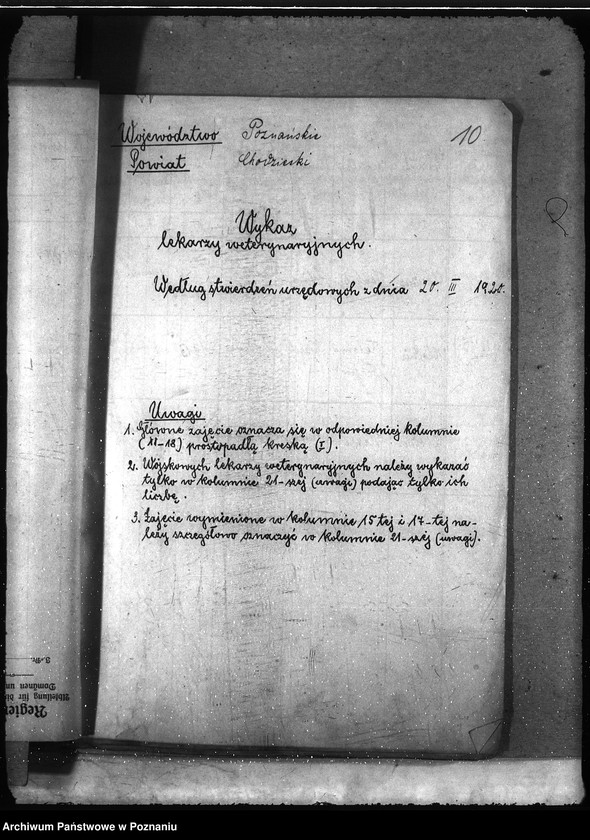 Województwo Poznańskie
10
Powiat Chodzieski
Wykaz
lekarzy weterynaryjnych.
Według stwierdzeń urzędowych z dnia 20. III 1920.
Uwagi
1. Główne zajęcie oznacza się w odpowiedniej kolumnie
(11-18) prostopadłą kreską (I).
2. Wojskowych lekarzy weterynaryjnych należy wykazać
tylko w kolumnie 21-szej (uwagi) podając tylko ich
liczbę.
3. Zajęcie wymienione w kolumnie 15 tej i 17-tej na-
leży szczegółowo oznaczyć w kolumnie 21-szej (uwagi).
Regier
Abteilung für di
Domänen un
J.-Nr.
Archiwum Państwowe w Poznaniu